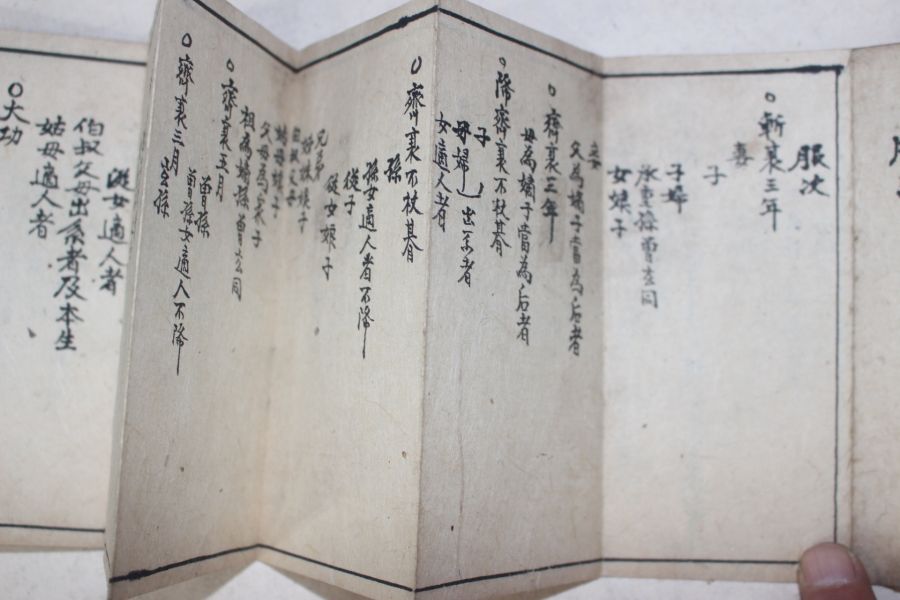 服次
○斬衰三年
妻
子
子婦
承重孫曾玄同
女嫁子
妾
父為嫡子當為后者
○齊衰三年
母為嫡子當為后者
○降齊衰不杖朞
子
母婦 出系者
女適人者
○齊衰不杖朞
孫
孫女適人者不降
從子
從女嫁子
兄弟
姑母嫁子
父母為衆子
祖為嫡孫曾玄同
○齊衰五月
曾孫
曾孫女適人不降
○齊衰三月玄孫
從女適人者
伯叔父母出系者及本生
姑母適人者
○大功